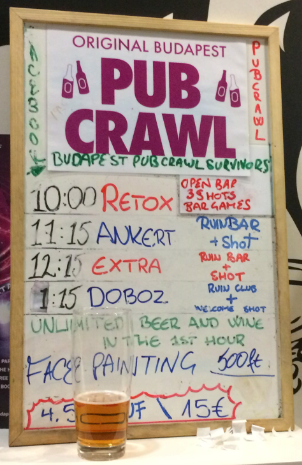 ORIGINAL BUDAPEST
PUB
CRAWL
FACEBOOK
PUBCRAWL
BUDAPEST PUBCRAWL SURVIVORS
10:00 RETOX
OPEN BAR
3 SHOTS
BAR GAMES
11:15 ANKERT
RUINBAR
+ SHOT
12:15 EXTRA
RUIN BAR
+
SHOT
1:15 DOBOZ
RUIN CLUB
+
WELCOME SHOT
UNLIMITED BEER AND WINE
IN THE 1ST HOUR
FACE PAINTING 500ft.
4.5 UF \ 15€